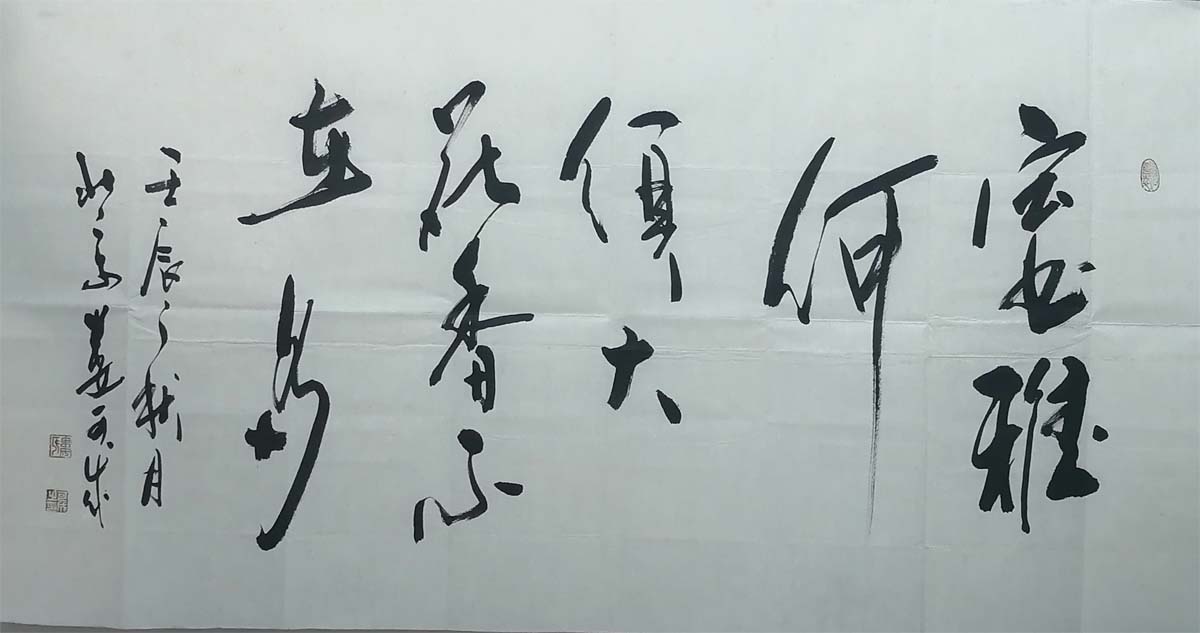 室雅
何
须大
花香不
在多
壬辰之秋月
北京